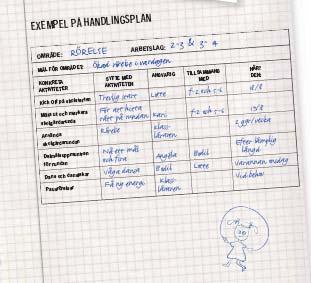 EXEMPEL PÅ HANDLINGSPLAN
OMRÅDE: RÖRELSE ARBETSLAG: 2-3 & 3-4
MÅL FÖR OMRÅDET: Ökad rörelse i vardagen
KONKRETA AKTIVITETER
SYFTE MED AKTIVITETEN
ANSVARIG
TILLSAMMANS MED
NÄR? DEN:
Kick Off på skolstarten Trevlig start Lotte F-2 och 5-6 18/8
Måla ut och markera skolgårdsrunda För att hitta rätt på rundan Karl F-2 och 5-6 19/8
Använda skolgårdsrundan Rörelse Klassläraren 2 ggr/vecka
Delmålsuppmuntran för rundan Nå ett mål och fira Angela Bodil Efter lämplig längd
Dans och danslekar Våga dansa Bodil Lotte Varannan onsdag
Pausgympa Få ny energi Klassläraren Vid behov